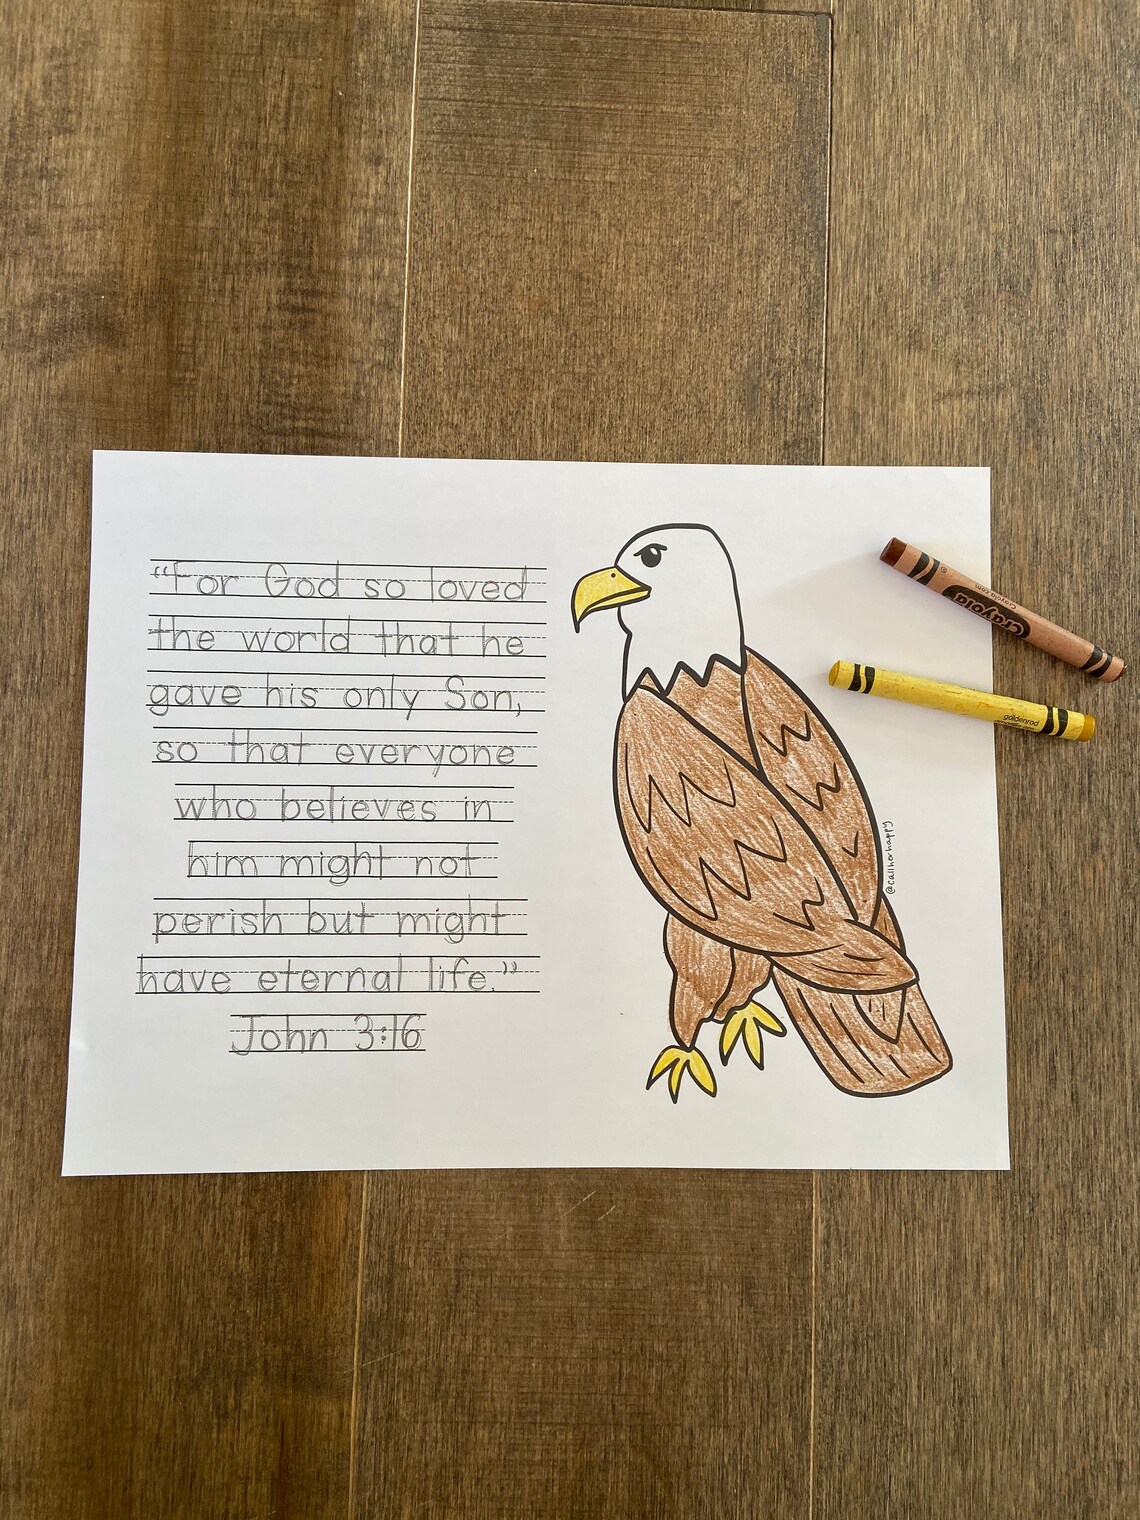 “For God so loved
the world that he
gave his only Son,
so that everyone
who believes in
him might not
perish but might
have eternal life.”
John 3:16
@callherhappy
Crayola
Crayola.com
goldenrod